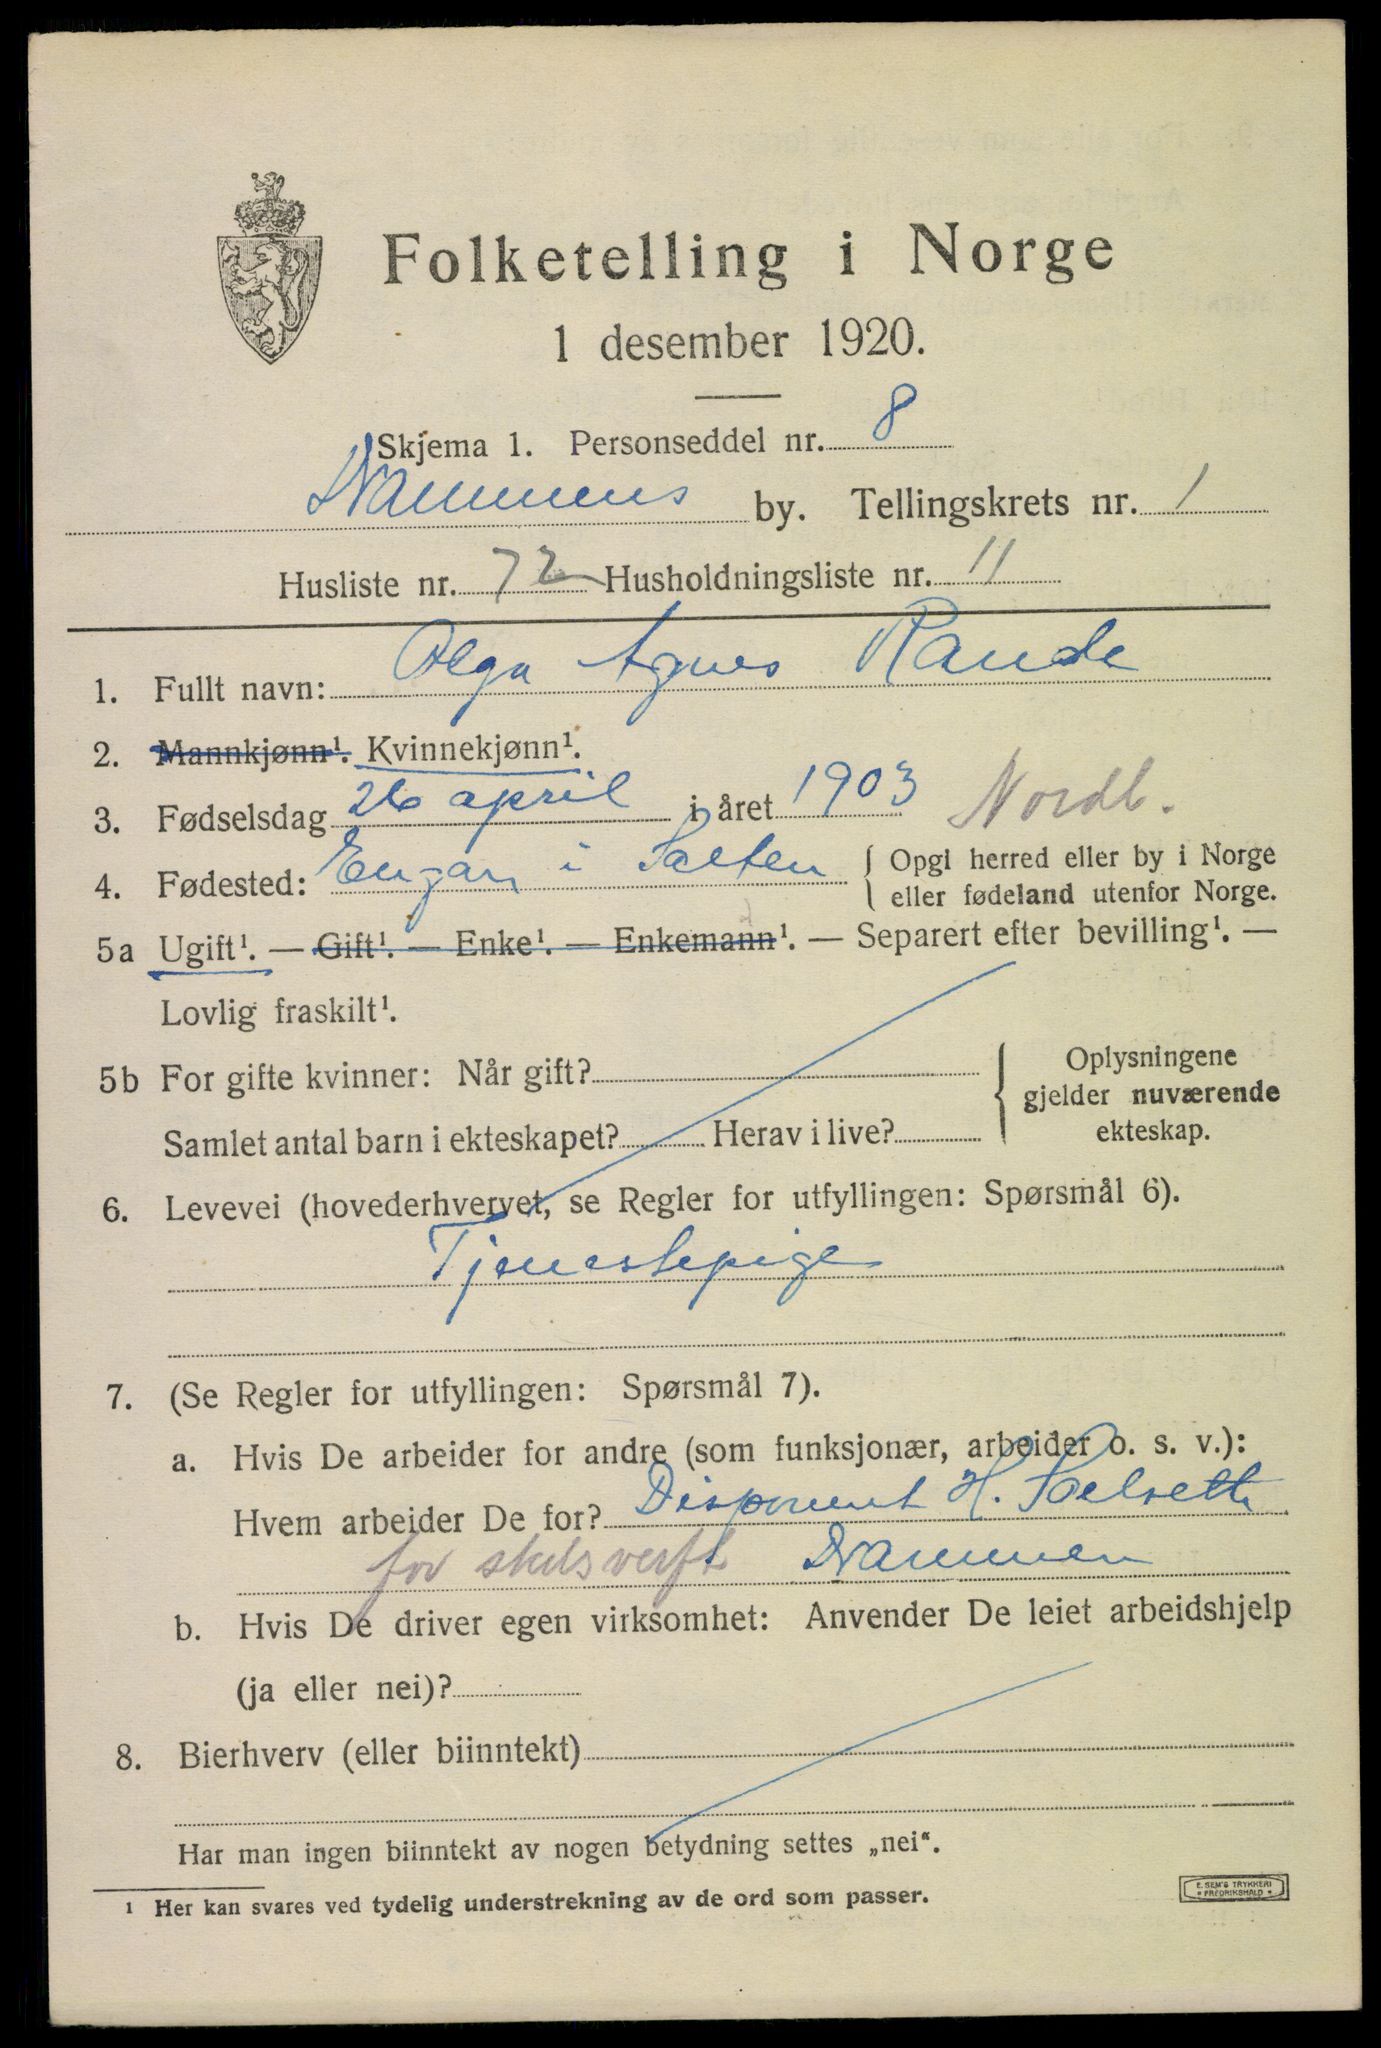 Folketelling i Norge
1 desember 1920.
Skjema 1. Personseddel nr. 8
Drammens by. Tellingskrets nr. 1
Husliste nr. 72 Husholdningsliste nr. 11
1. Fullt navn: Olga Agnes Rande
2. Mannkjønn¹. Kvinnekjønn¹.
3. Fødselsdag 26 april i året 1903 Nordl.
4. Fødested: Engan i Salten { Opgi herred eller by i Norge
eller fødeland utenfor Norge.
5a Ugift¹. — Gift¹. — Enke¹. — Enkemann¹. — Separert efter bevilling¹. —
Lovlig fraskilt¹.
5b For gifte kvinner: Når gift? { Oplysningene
gjelder nuværende
Samlet antal barn i ekteskapet? Herav i live? ekteskap.
6. Levevei (hovederhvervet, se Regler for utfyllingen: Spørsmål 6).
Tjenestepige
7. (Se Regler for utfyllingen: Spørsmål 7).
a. Hvis De arbeider for andre (som funksjonær, arbeider o. s. v.):
Hvem arbeider De for? Disponent H.
for skibsverft Drammen
b. Hvis De driver egen virksomhet: Anvender De leiet arbeidshjelp
(ja eller nei)?
8. Bierhverv (eller biinntekt)
Har man ingen biinntekt av nogen betydning settes „nei“.
¹ Her kan svares ved tydelig understrekning av de ord som passer.
E. SEM'S TRYKKERI
* FREDRIKSHALD *